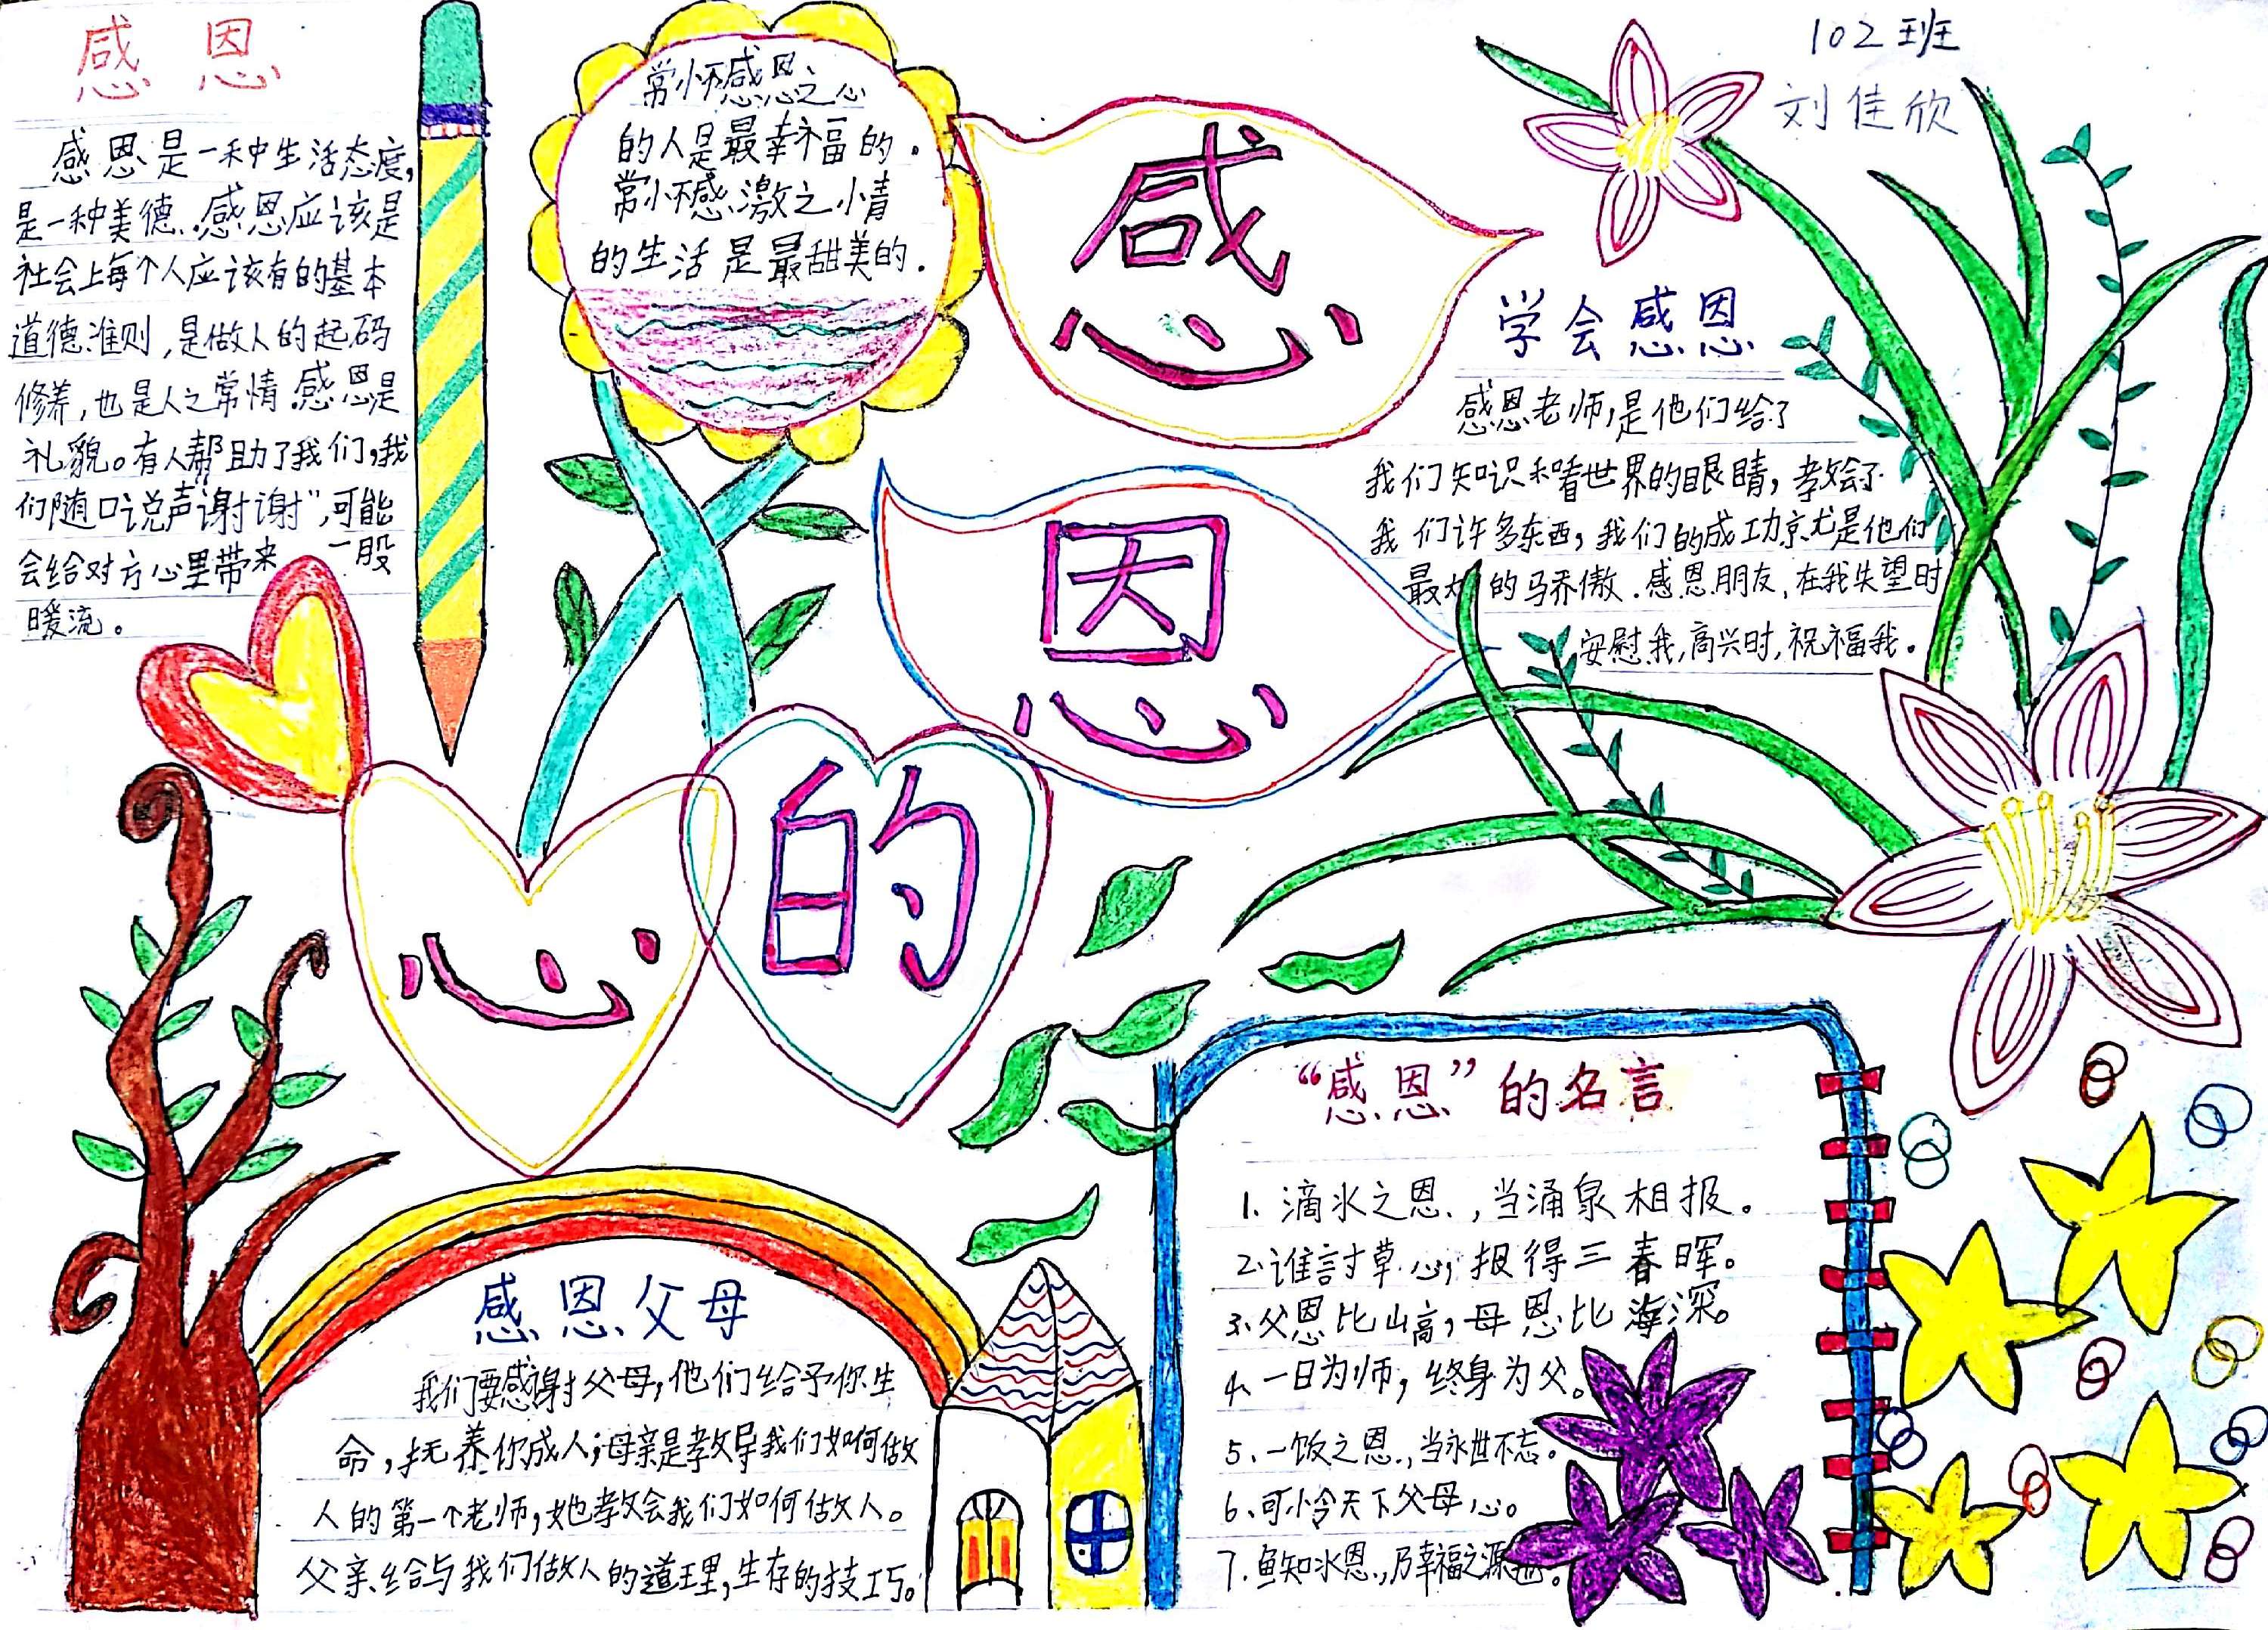 感恩
感恩是一种生活态度,
是一种美德.感恩应该是
社会上每个人应该有的基本
道德准则,是做人的起码
修养,也是人之常情.感恩是
礼貌。有人帮助了我们,我
们随口说声"谢谢",可能
会给对方心里带来一股
暖流。
常怀感恩之心
的人是最幸福的.
常怀感激之情
的生活是最甜美的.
感
恩
的
心
102班
刘佳欣
学会感恩
感恩老师,是他们给了
我们知识和看世界的眼睛,教会了
我们许多东西,我们的成功就是他们
最大的骄傲.感恩朋友,在我失望时
安慰我,高兴时,祝福我。
感恩父母
我们要感谢父母,他们给予你生
命,抚养你成人;母亲是教导我们如何做
人的第一个老师,她教会我们如何做人。
父亲给与我们做人的道理,生存的技巧。
“感恩”的名言
1、滴水之恩,当涌泉相报。
2、谁言寸草心,报得三春晖。
3、父恩比山高,母恩比海深。
4、一日为师,终身为父。
5、一饭之恩,当永世不忘。
6、可怜天下父母心。
7、鱼知水恩,乃幸福之源也。